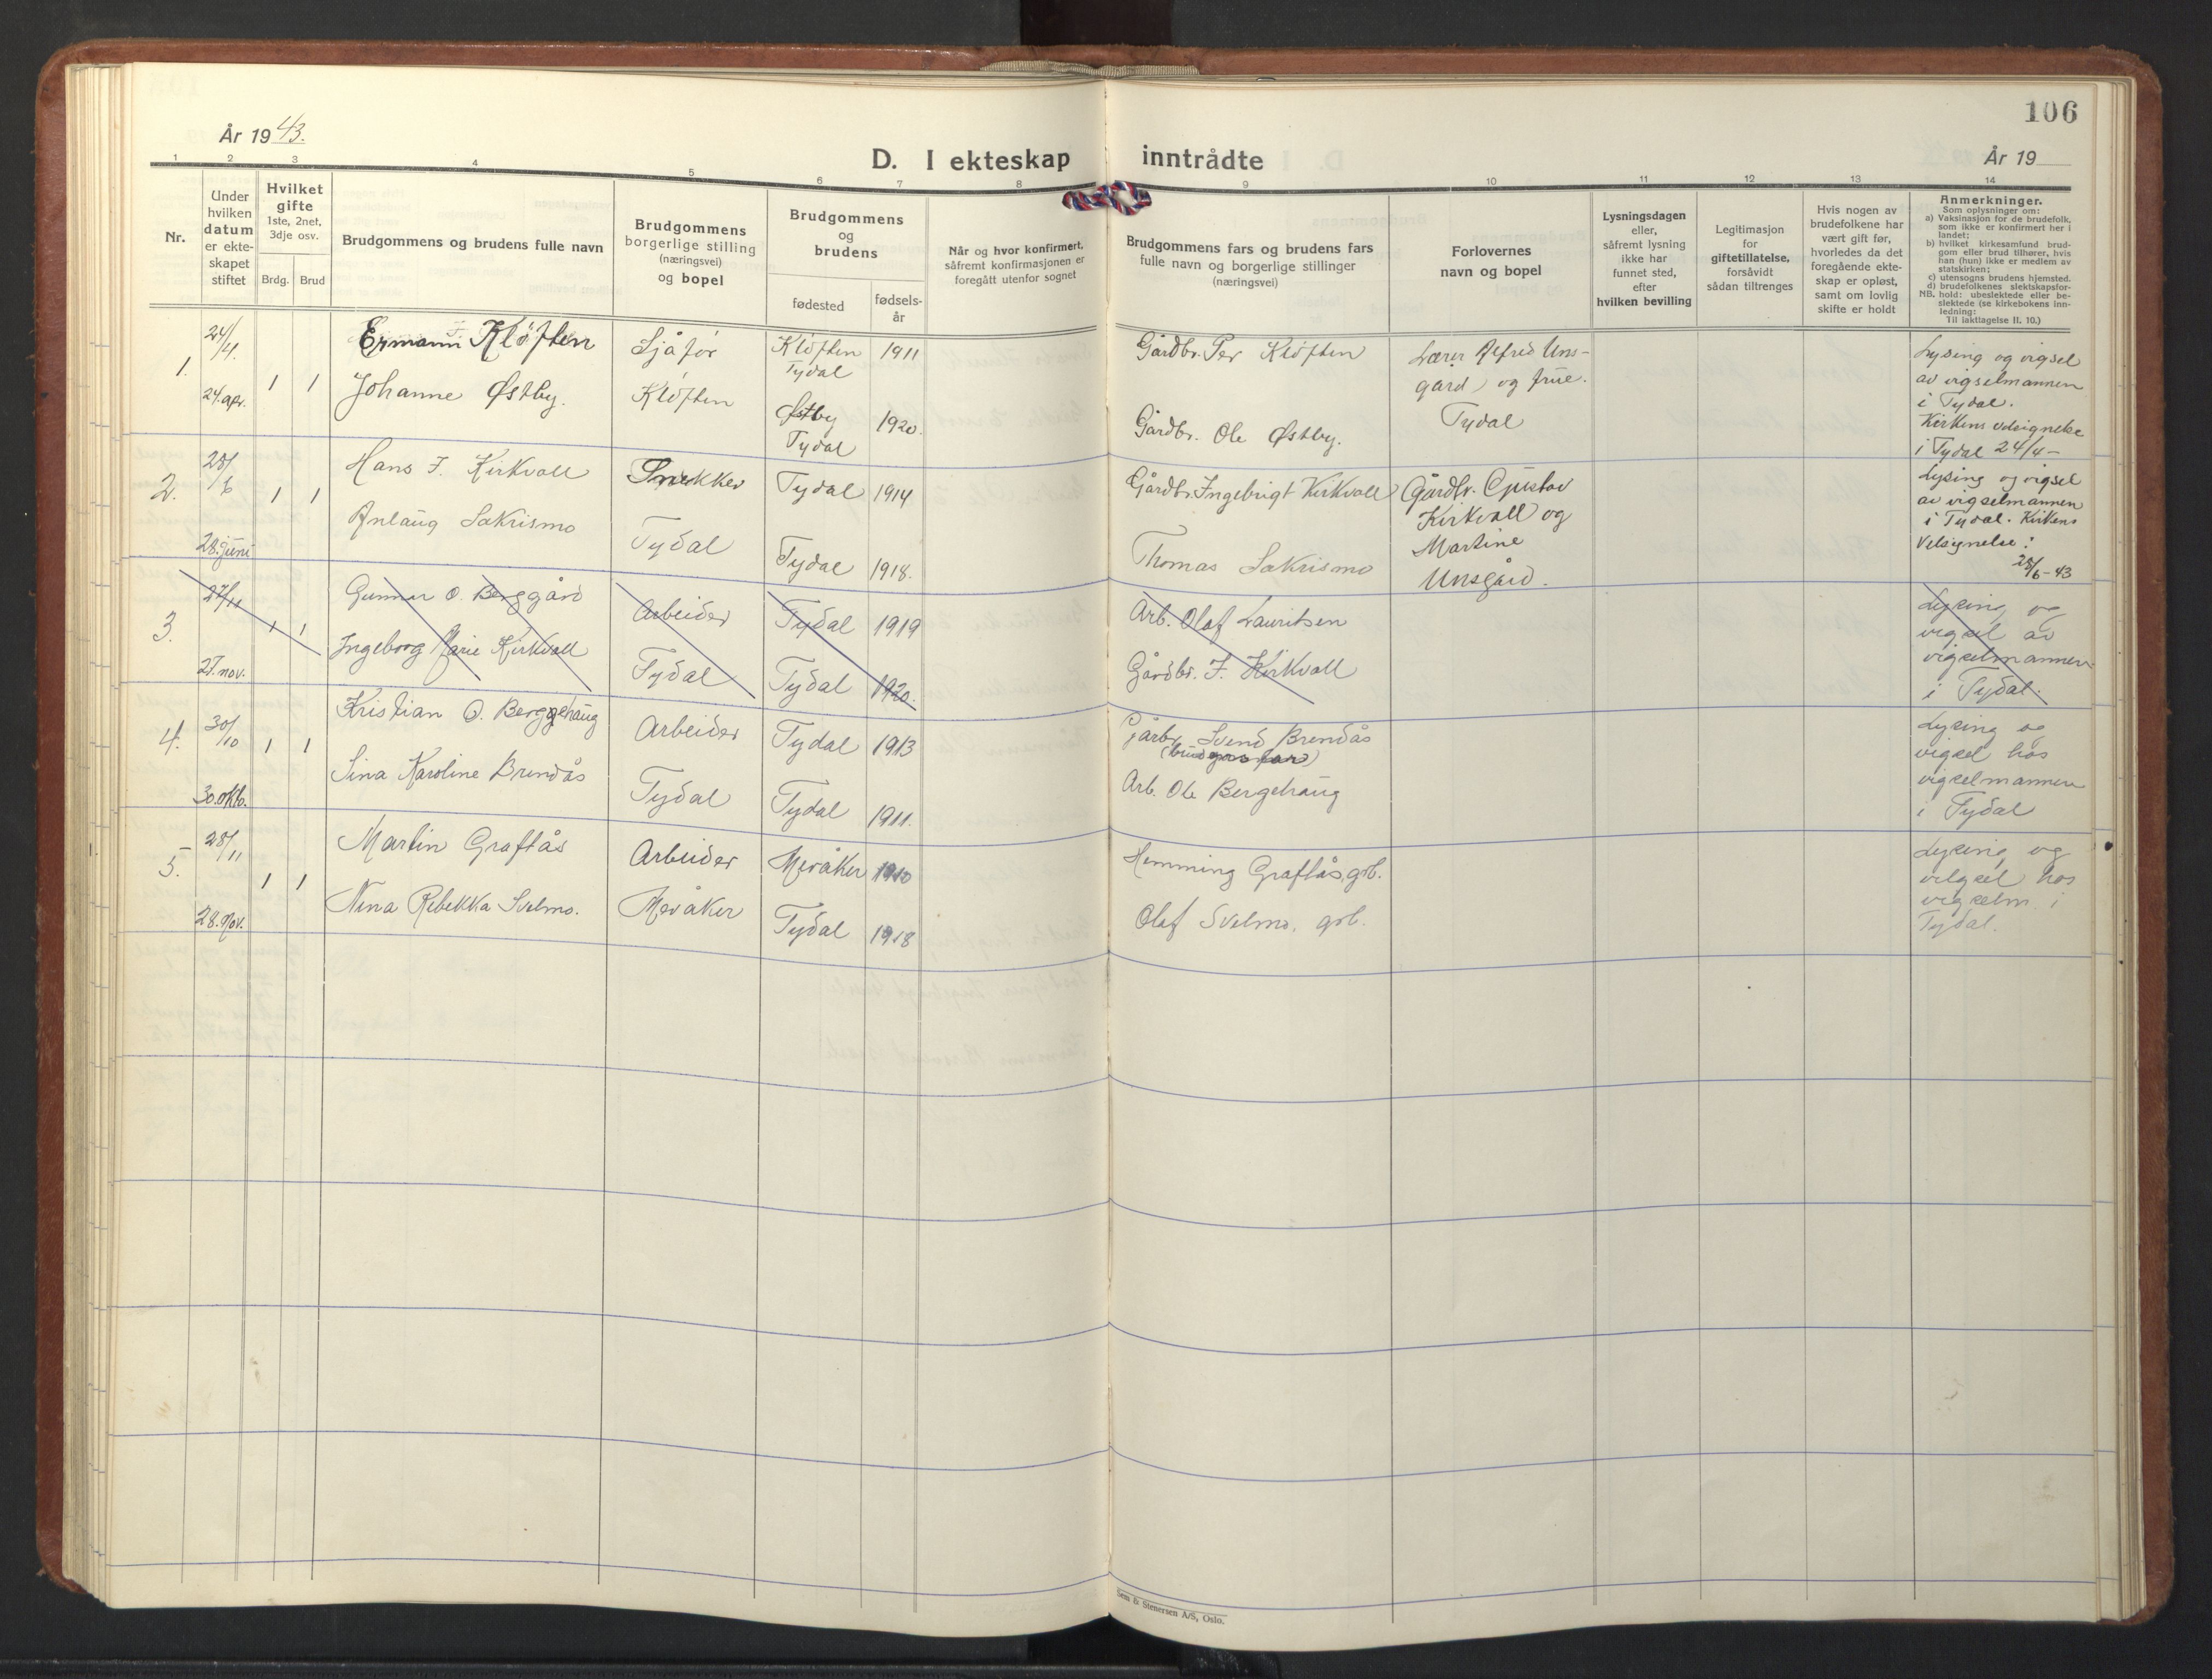 106
År 1943.
D. I ekteskap inntrådte
År 19
1 2 3 4 5 6 7 8 9 10 11 12 13 14
Nr.
Under
hvilken
datum
er ekte-
skapet
stiftet
Hvilket
gifte
1ste, 2net,
3dje osv.
Brdg. Brud
Brudgommens og brudens fulle navn
Brudgommens
borgerlige stilling
(næringsvei)
og bopel
Brudgommens
og
brudens
fødested
fødsels-
år
Når og hvor konfirmert,
såfremt konfirmasjonen er
foregått utenfor sognet
Brudgommens fars og brudens fars
fulle navn og borgerlige stillinger
(næringsvei)
Forlovernes
navn og bopel
Lysningsdagen
eller,
såfremt lysning
ikke har
funnet sted,
efter
hvilken bevilling
Legitimasjon
for
giftetillatelse,
forsåvidt
sådan tiltrenges
Hvis nogen av
brudefolkene har
vært gift før,
hvorledes da det
foregående ekte-
skap er opløst,
samt om lovlig
skifte er holdt
Anmerkninger.
Som oplysninger om:
a) Vaksinasjon for de brudefolk,
som ikke er konfirmert her i
landet;
b) hvilket kirkesamfund brud-
gom eller brud tilhører, hvis
han (hun) ikke er medlem av
statskirken;
c) utensogns brudens hjemsted.
d) brudefolkenes slektskapsfor-
NB. hold: ubeslektede eller be-
slektede (se kirkebokens inn-
ledning:
Til iakttagelse II. 10.)
1.
24/4.
24. apr.
1 1
Ermann Kløften
Johanne Østby.
Sjåfør
Kløften
Kløften
Tydal
1911
Østby
Tydal
1920.
Gårdbr. Per Kløften
Gårdbr. Ole Østby.
Lærer Alfred Uns-
gård og frue.
Tydal
Lysing og vigsel
av vigselmannen
i Tydal.
Kirkens velsignelse
i Tydal 24/4 –
2.
28/6
28. juni
1 1
Hans I. Kirkvoll
Anlaug Sakrismo
Snekker
Tydal
Tydal 1914
Tydal 1918.
Gårdbr. Ingebrigt Kirkvoll
Thomas Sakrismo
Gårdbr. Gustav
Kirkvoll og
Martine
Unsgård.
Lysing og vigsel
av vigselmannen
i Tydal. Kirkens
Velsignelse:
28/6-43
3.
27/11
27. nov.
1 1
Gunnar O. Berggård
Ingeborg Marie Kirkvoll
Arbeider
Tydal
Tydal 1919
Tydal 1920.
Arb. Olaf Lauritsen
Gårdbr. I. Kirkvoll
Lysing og
vigsel av
vigselmannen
i Tydal.
4.
30/10
30. okb.
1 1
Kristian O. Berggehaug
Sina Karoline Brendås
Arbeider
Tydal
Tydal 1913
Tydal 1911.
Gårbr. Svend Brendås
Arb. Ole Bergehaug
Lysing og
vigsel hos
vigselmannen
i Tydal
5.
28/11
28. Nov.
1 1
Martin Graftås
Nina Rebekka Svelmo.
Arbeider
Meråker
Meråker 1910
Tydal 1918
Hemming Graftås, grb.
Olaf Svelmo, grb.
Lysing og
velgsel hos
vigselm. i
Tydal.
Sem & Stenersen A/S, Oslo.